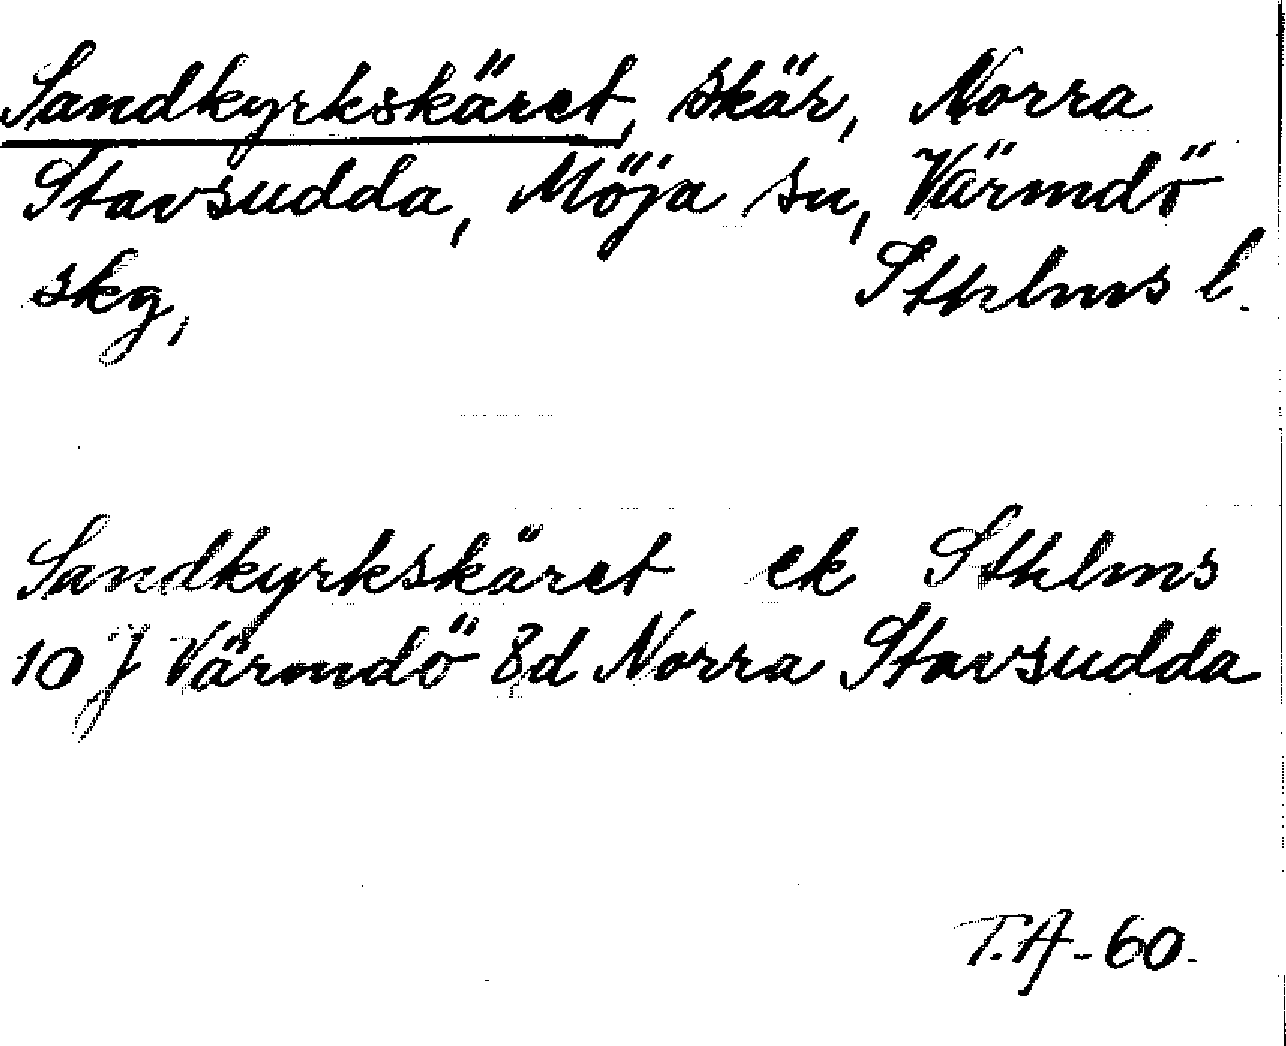 Sandkyrkskäret, skär, Norra
Stavsudda, Möja sn, Värmdö
skg, Sthlms l.
Sandkyrkskäret ek Sthlms
10 J Värmdö 8d Norra Stavsudda
T.A-60.